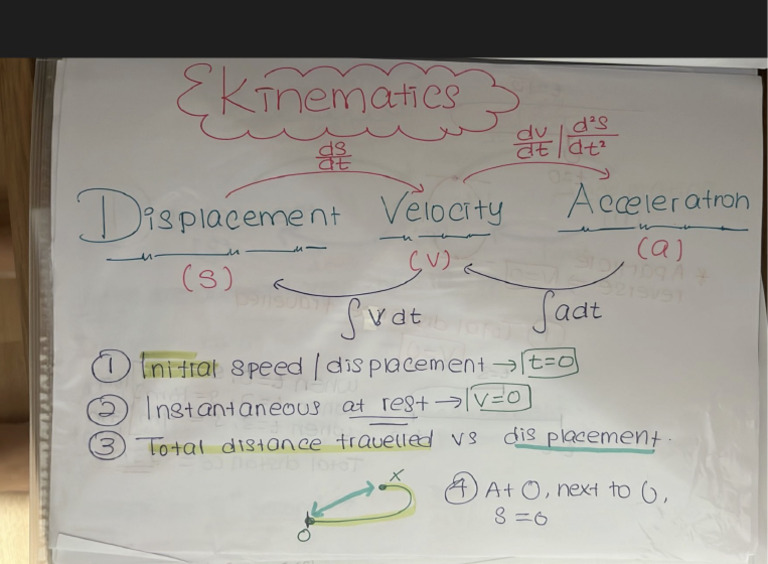 Kinematics
ds/dt
dv/dt | d²s/dt²
Displacement Velocity Acceleration
(S) (V) (a)
∫Vdt ∫adt
① Initial speed / displacement → t=0
② Instantaneous at rest → V=0
③ Total distance travelled vs displacement.
X
④ At O, next to O,
S=0
O